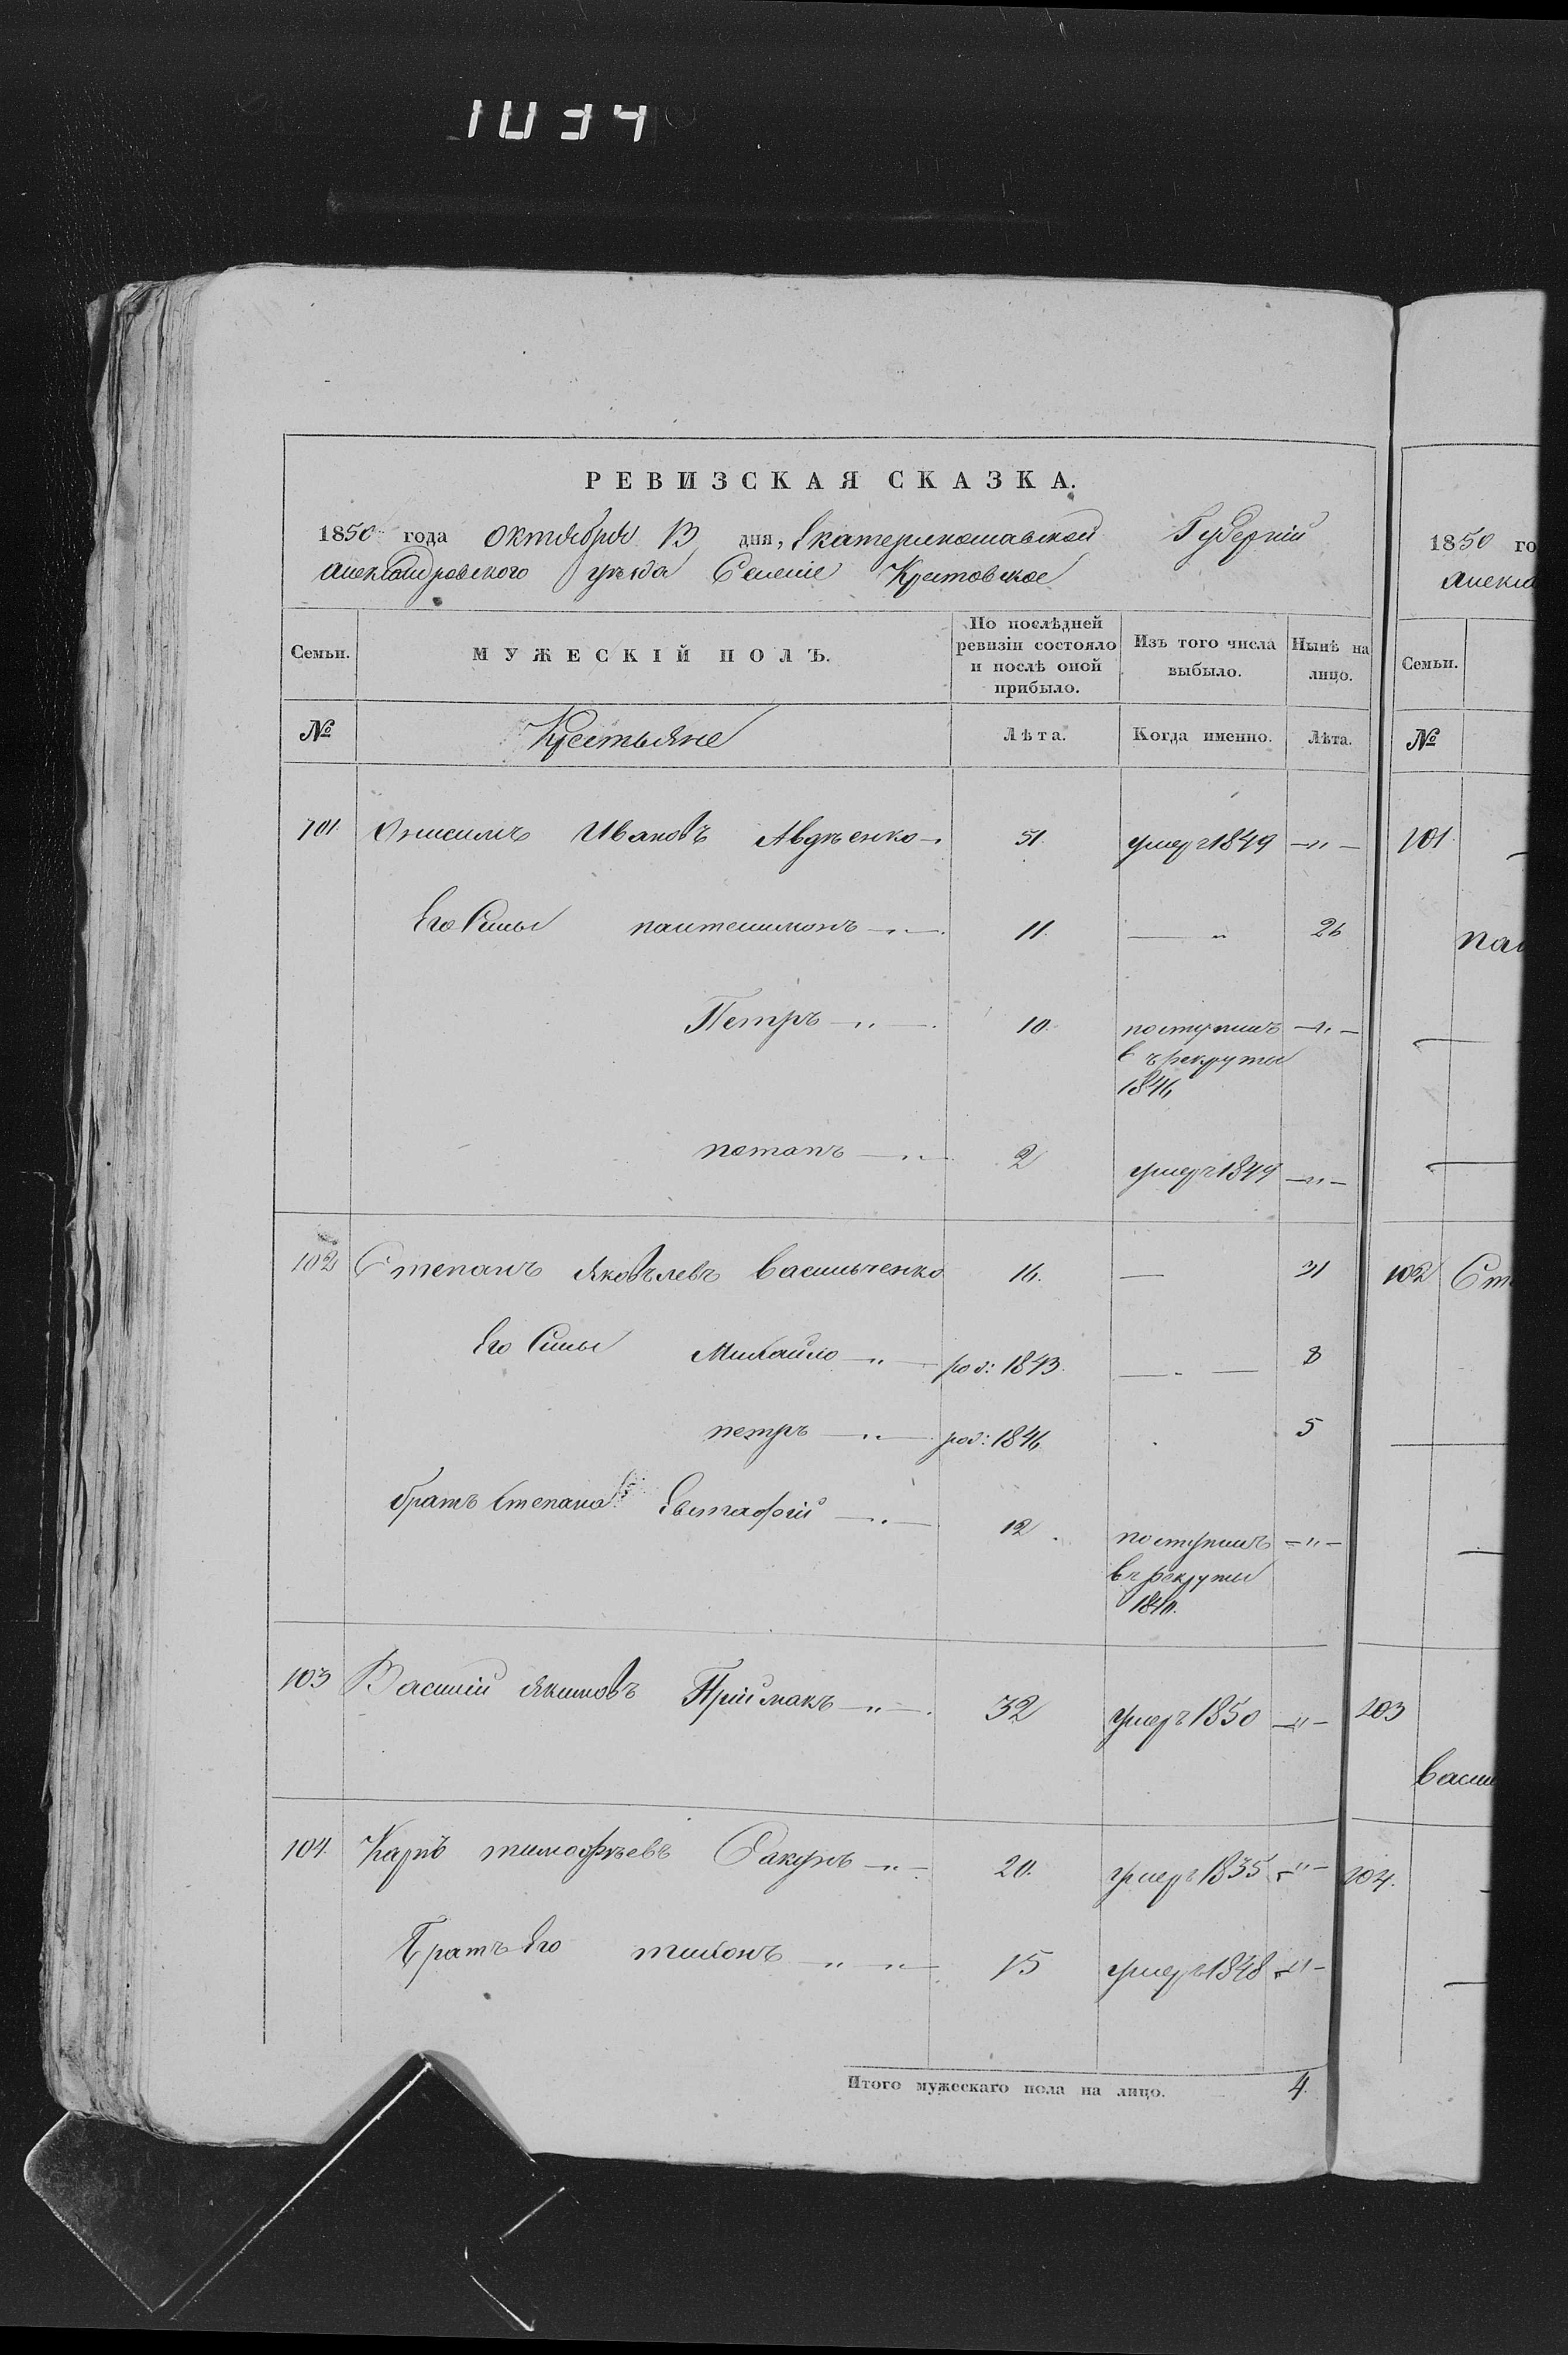 1034
РЕВИЗСКАЯ СКАЗКА.
1850 года Октября 13 дня, Екатеринославской Губерніи
Александровского уѣзда Селеніе Крестовское
Семьи. МУЖЕСКІЙ ПОЛЪ. По послѣдней ревизіи состояло и послѣ оной прибыло. Изъ того числа выбыло. Нынѣ на лицо.
№ Крестьяне Лѣта. Когда именно. Лѣта.
101. Онисимъ Ивановъ Авдѣенко 51 умеръ 1849 — „ —
Его Сыны пантешмонъ — „ — 11. — „ 26
Петръ — „ — 10. поступилъ — „ —
въ рекруты
1846
потапъ — „ — 2 умеръ 1849 — „ —
102 Степанъ Яковлевъ Васильченко 16. — 31
Его Сины Михайло — „ — род: 1843. — „ — 8
петръ — „ — род: 1846 5
братъ Степана Евстафій — „ — 12. поступилъ — „ —
въ рекруты
1840.
103 Василій Якимовъ Пріймакъ — „ — 32 умеръ 1850 — „ —
104. Карпъ тимофѣевъ — „ — 20. умеръ 1835 — „ —
Братъ Его тихонъ „ „ — 15 умеръ 1848 — „ —
Итого мужескаго пола на лицо. 4.
1850 го
Алекса
Семьи.
№
101
пан
102 Сте
103
Васи
104.